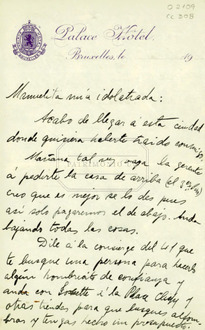 Palace Hôtel
Bruxelles, le 19
Manuelita mía idolatrada:
Acabo de llegar a esta ciudad
donde quisiera haberte traido conmigo.
Mañana tal vez vaya la gerente
a pederte la casa de arriba
creo que es mejor se lo des pues
asi solo pagaremos el de abajo. Anda
bajando todas las cosas.
Dile a la concierge del 41 que
te busque una persona para hacerle
algún de confianza y
anda con a la Place Clichy y
otras tiendas para que busques alfom
bras y tengas hecho un presupuesto.